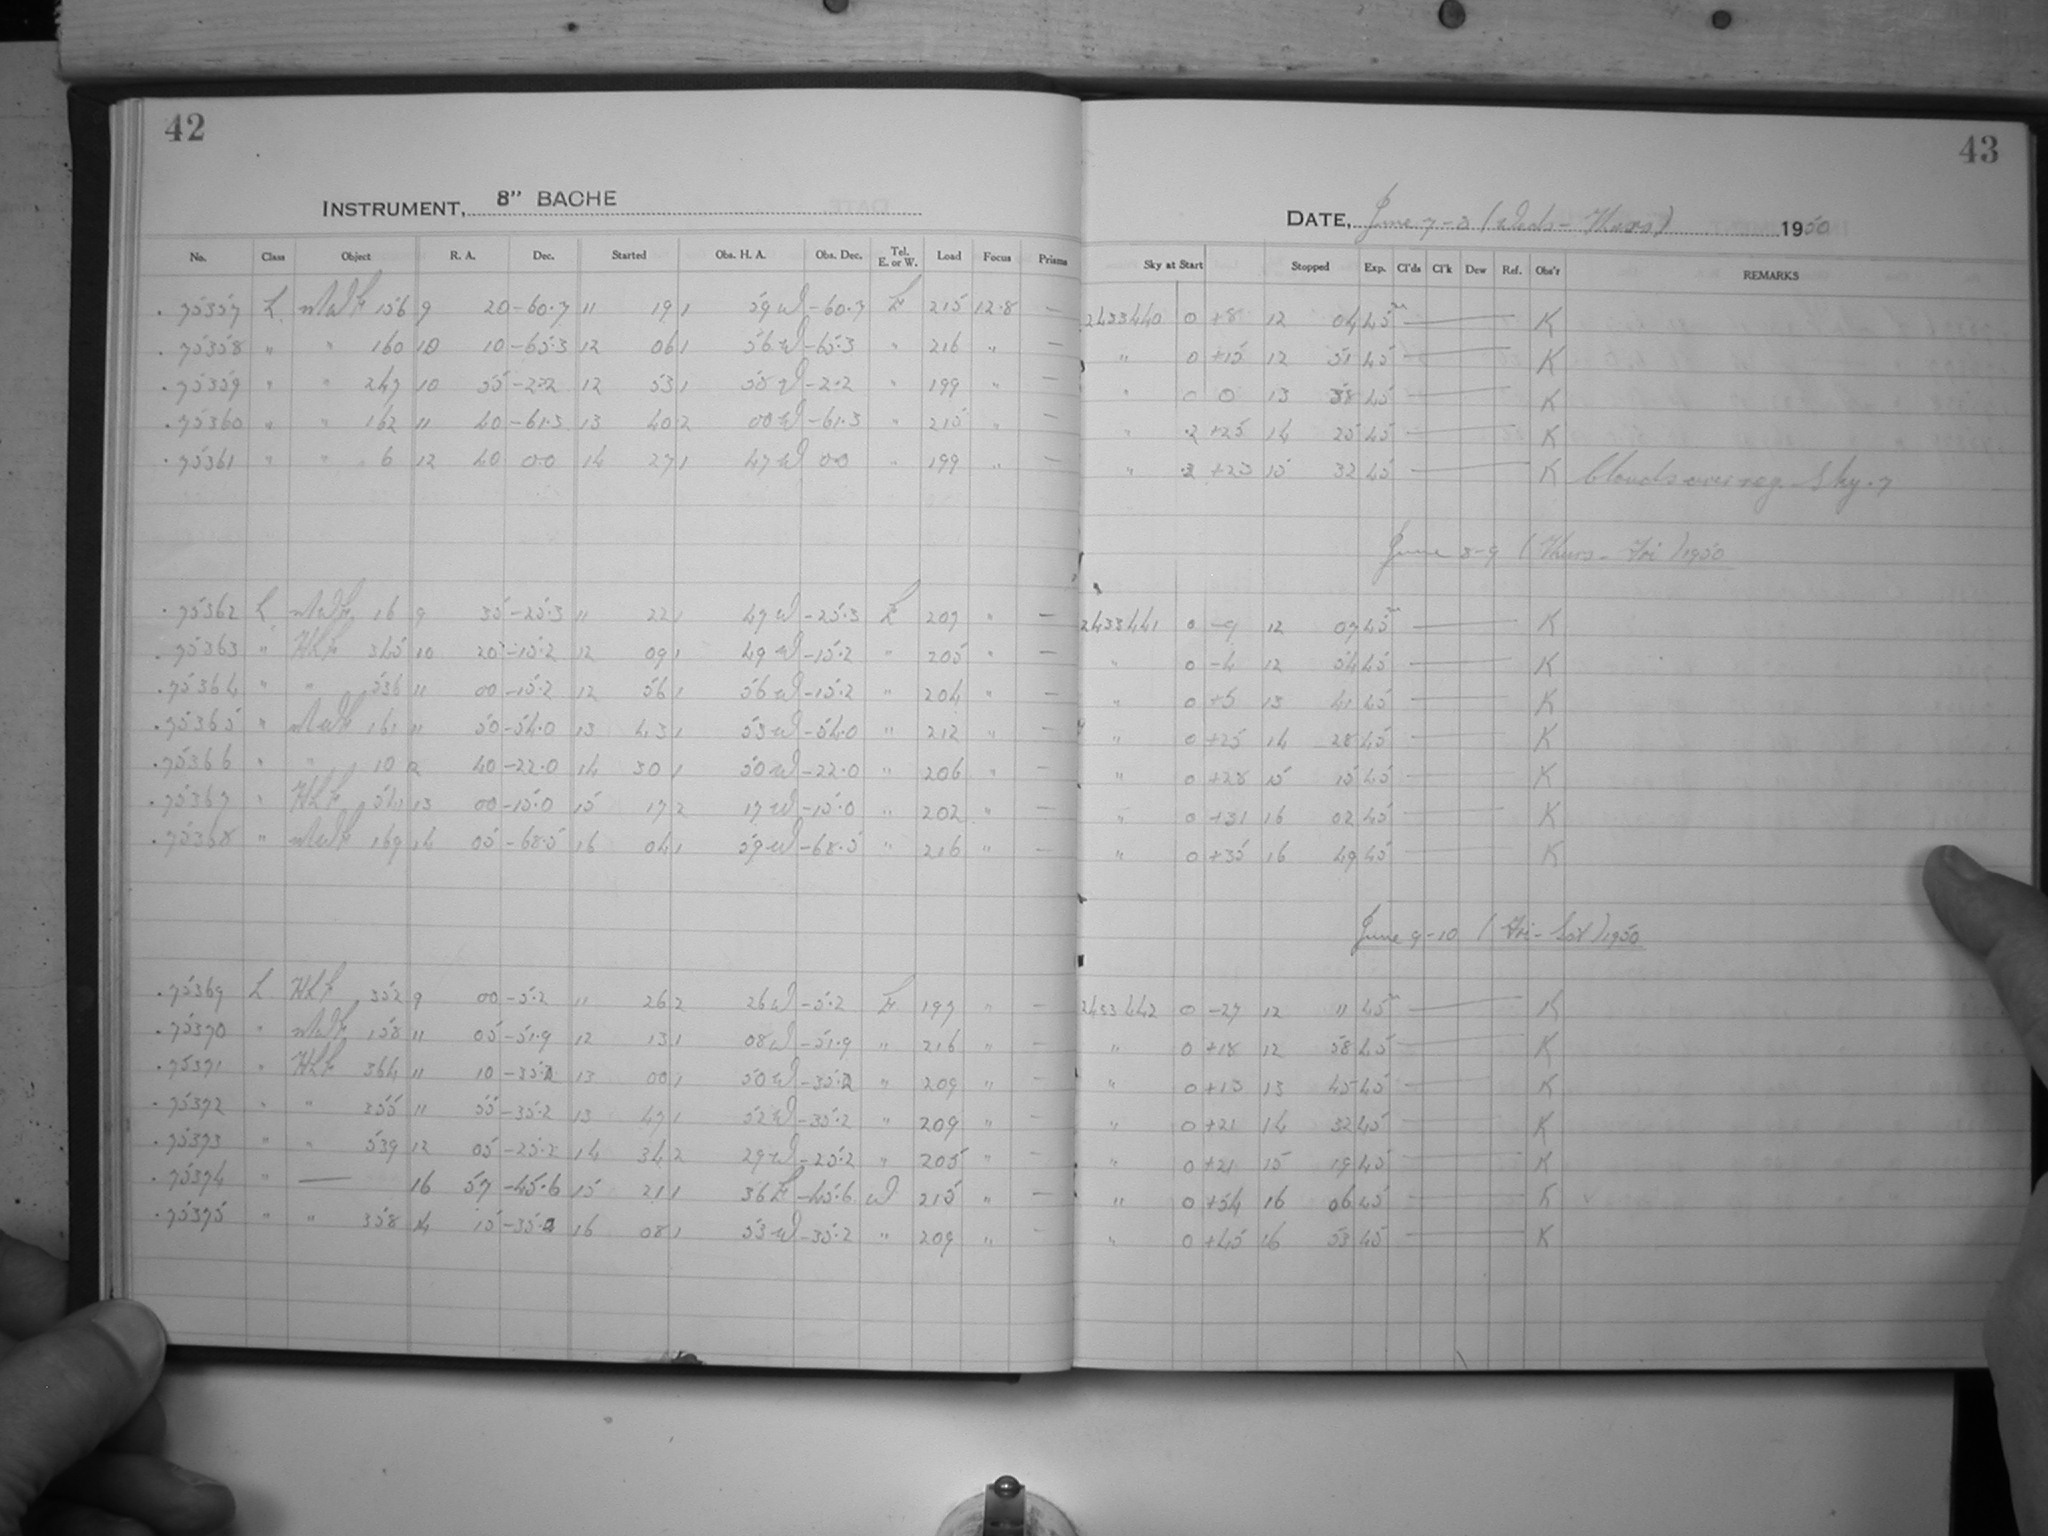 42
43
INSTRUMENT, 8" BACHE
DATE, June 7-8 (Weds - Thurs) 1950
No. Class Object R. A. Dec. Started Obs. H. A. Obs. Dec. Tel. E. or W. Load Focus Prisms Sky at Start Stopped Exp. Cl'ds Cl'k Dew Ref. Obs'r REMARKS
75357 L MWF 156 9 20 -60.7 11 19 1 59 W -60.7 E 215 12.8 — 2433440 0 +8 12 04 45m — K
75358 " " 160 10 10 -65.3 12 06 1 56 W -65.3 " 216 " — " 0 +15 12 51 45 — K
75359 " " 247 10 55 -2.2 12 53 1 58 W -2.2 " 199 " — " 0 0 13 38 45 — K
75360 " " 162 11 40 -61.3 13 40 2 00 W -61.3 " 215 " — " .2 +25 14 25 45 — K
75361 " " 6 12 40 0.0 14 27 1 47 W 0.0 " 199 " — " +23 15 32 45 — K Clouds over reg. Sky .7
June 8-9 (Thurs - Fri) 1950
75362 L MWF 16 9 35 -25.3 11 22 1 47 W -25.3 E 207 " — 2433441 0 -9 12 07 45m — K
75363 " HLF 345 10 20 -15.2 12 09 1 49 W -15.2 " 205 " — " 0 -4 12 54 45 — K
75364 " " 536 11 00 -15.2 12 56 1 56 W -15.2 " 204 " — " 0 +5 13 41 45 — K
75365 " MWF 161 11 50 -54.0 13 43 1 53 W -54.0 " 212 " — " 0 +25 14 28 45 — K
75366 " " 10 12 40 -22.0 14 30 1 50 W -22.0 " 206 " — " 0 +28 15 15 45 — K
75367 " HLF 13 00 -15.0 15 17 2 17 W -15.0 " 202 " — " 0 +31 16 02 45 — K
75368 " MWF 169 14 05 -68.5 16 04 1 59 W -68.5 " 216 " — " 0 +35 16 49 45 — K
June 9-10 (Fri - Sat) 1950
75369 L HLF 352 9 00 -5.2 11 26 2 26 W -5.2 E 197 " — 2433442 0 -27 12 11 45m — K
75370 " MWF 158 11 05 -51.9 12 13 1 08 W -51.9 " 216 " — " 0 +18 12 58 45 — K
75371 " HLF 364 11 10 -35.2 13 00 1 50 W -35.2 " 209 " — " 0 +13 13 45 45 — K
75372 " " 355 11 55 -35.2 13 47 1 52 W -35.2 " 209 " — " 0 +21 14 32 45 — K
75373 " " 539 12 05 -25.2 14 34 2 29 W -25.2 " 205 " — " 0 +21 15 19 45 — K
75374 " — 16 57 -45.6 15 21 1 36 E -45.6 W 215 " — " 0 +54 16 06 45 — K
75375 " " 358 14 15 -35.2 16 08 1 53 W -35.2 " 209 " — " 0 +45 16 53 45 — K